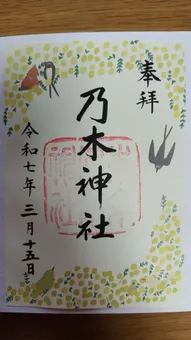 奉拝
乃木神社
令和七年三月十五日